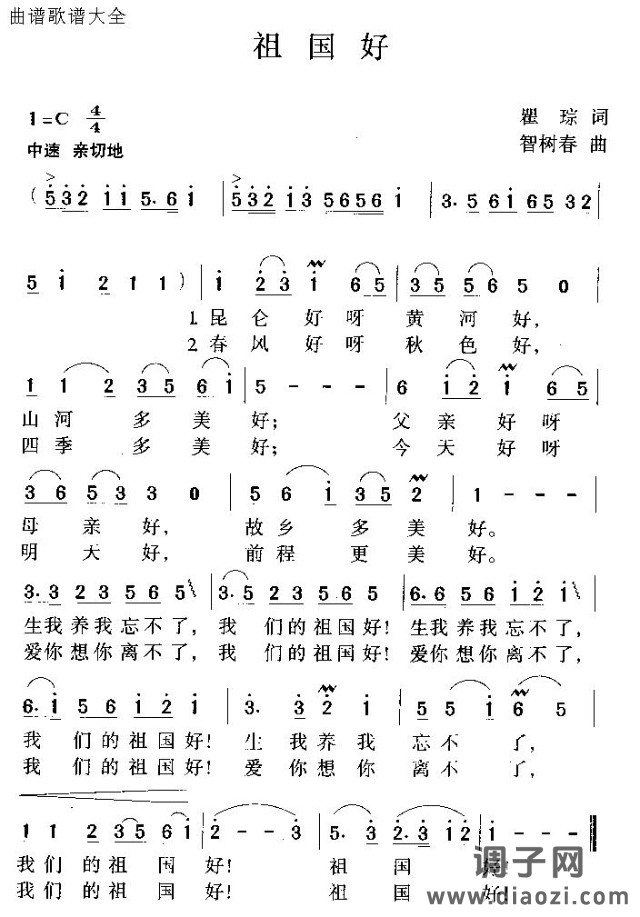 曲谱歌谱大全
祖国好
1=C 4/4
瞿琮 词
中速 亲切地
智树春 曲
(5 3 2 1 1 5. 6 1 | 5 3 2 1 3 5 6 5 6 1 | 3. 5 6 1 6 5 3 2 |
5 1 2 1 1) | 1 2 3 1 6 5 | 3 5 5 6 5 0 |
1.昆仑好呀黄河好,
2.春风好呀秋色好,
1 1 2 3 5 6 1 | 5 - - - | 6 1 2 1 6 5 |
山河多美好; 父亲好呀
四季多美好; 今天好呀
3 6 5 3 3 0 | 5 6 1 3 5 2 | 1 - - - |
母亲好, 故乡多美好。
明天好, 前程更美好。
3. 3 2 3 5 6 5 | 3. 5 2 3 5 6 5 | 6. 6 5 6 1 2 1 |
生我养我忘不了, 我们的祖国好! 生我养我忘不了,
爱你想你离不了, 我们的祖国好! 爱你想你离不了,
6. 1 5 6 1 2 1 | 3. 3 2 1 | 5 5 1 6 5 |
我们的祖国好! 生我养我忘不了,
我们的祖国好! 爱你想你离不了,
1 1 2 3 5 6 1 | 2 - - 3 | 5. 3 2. 3 1 2 | 1 - - - |
我们的祖国好! 祖国好!
我们的祖国好! 祖国好!
调子网
www.diaozi.com